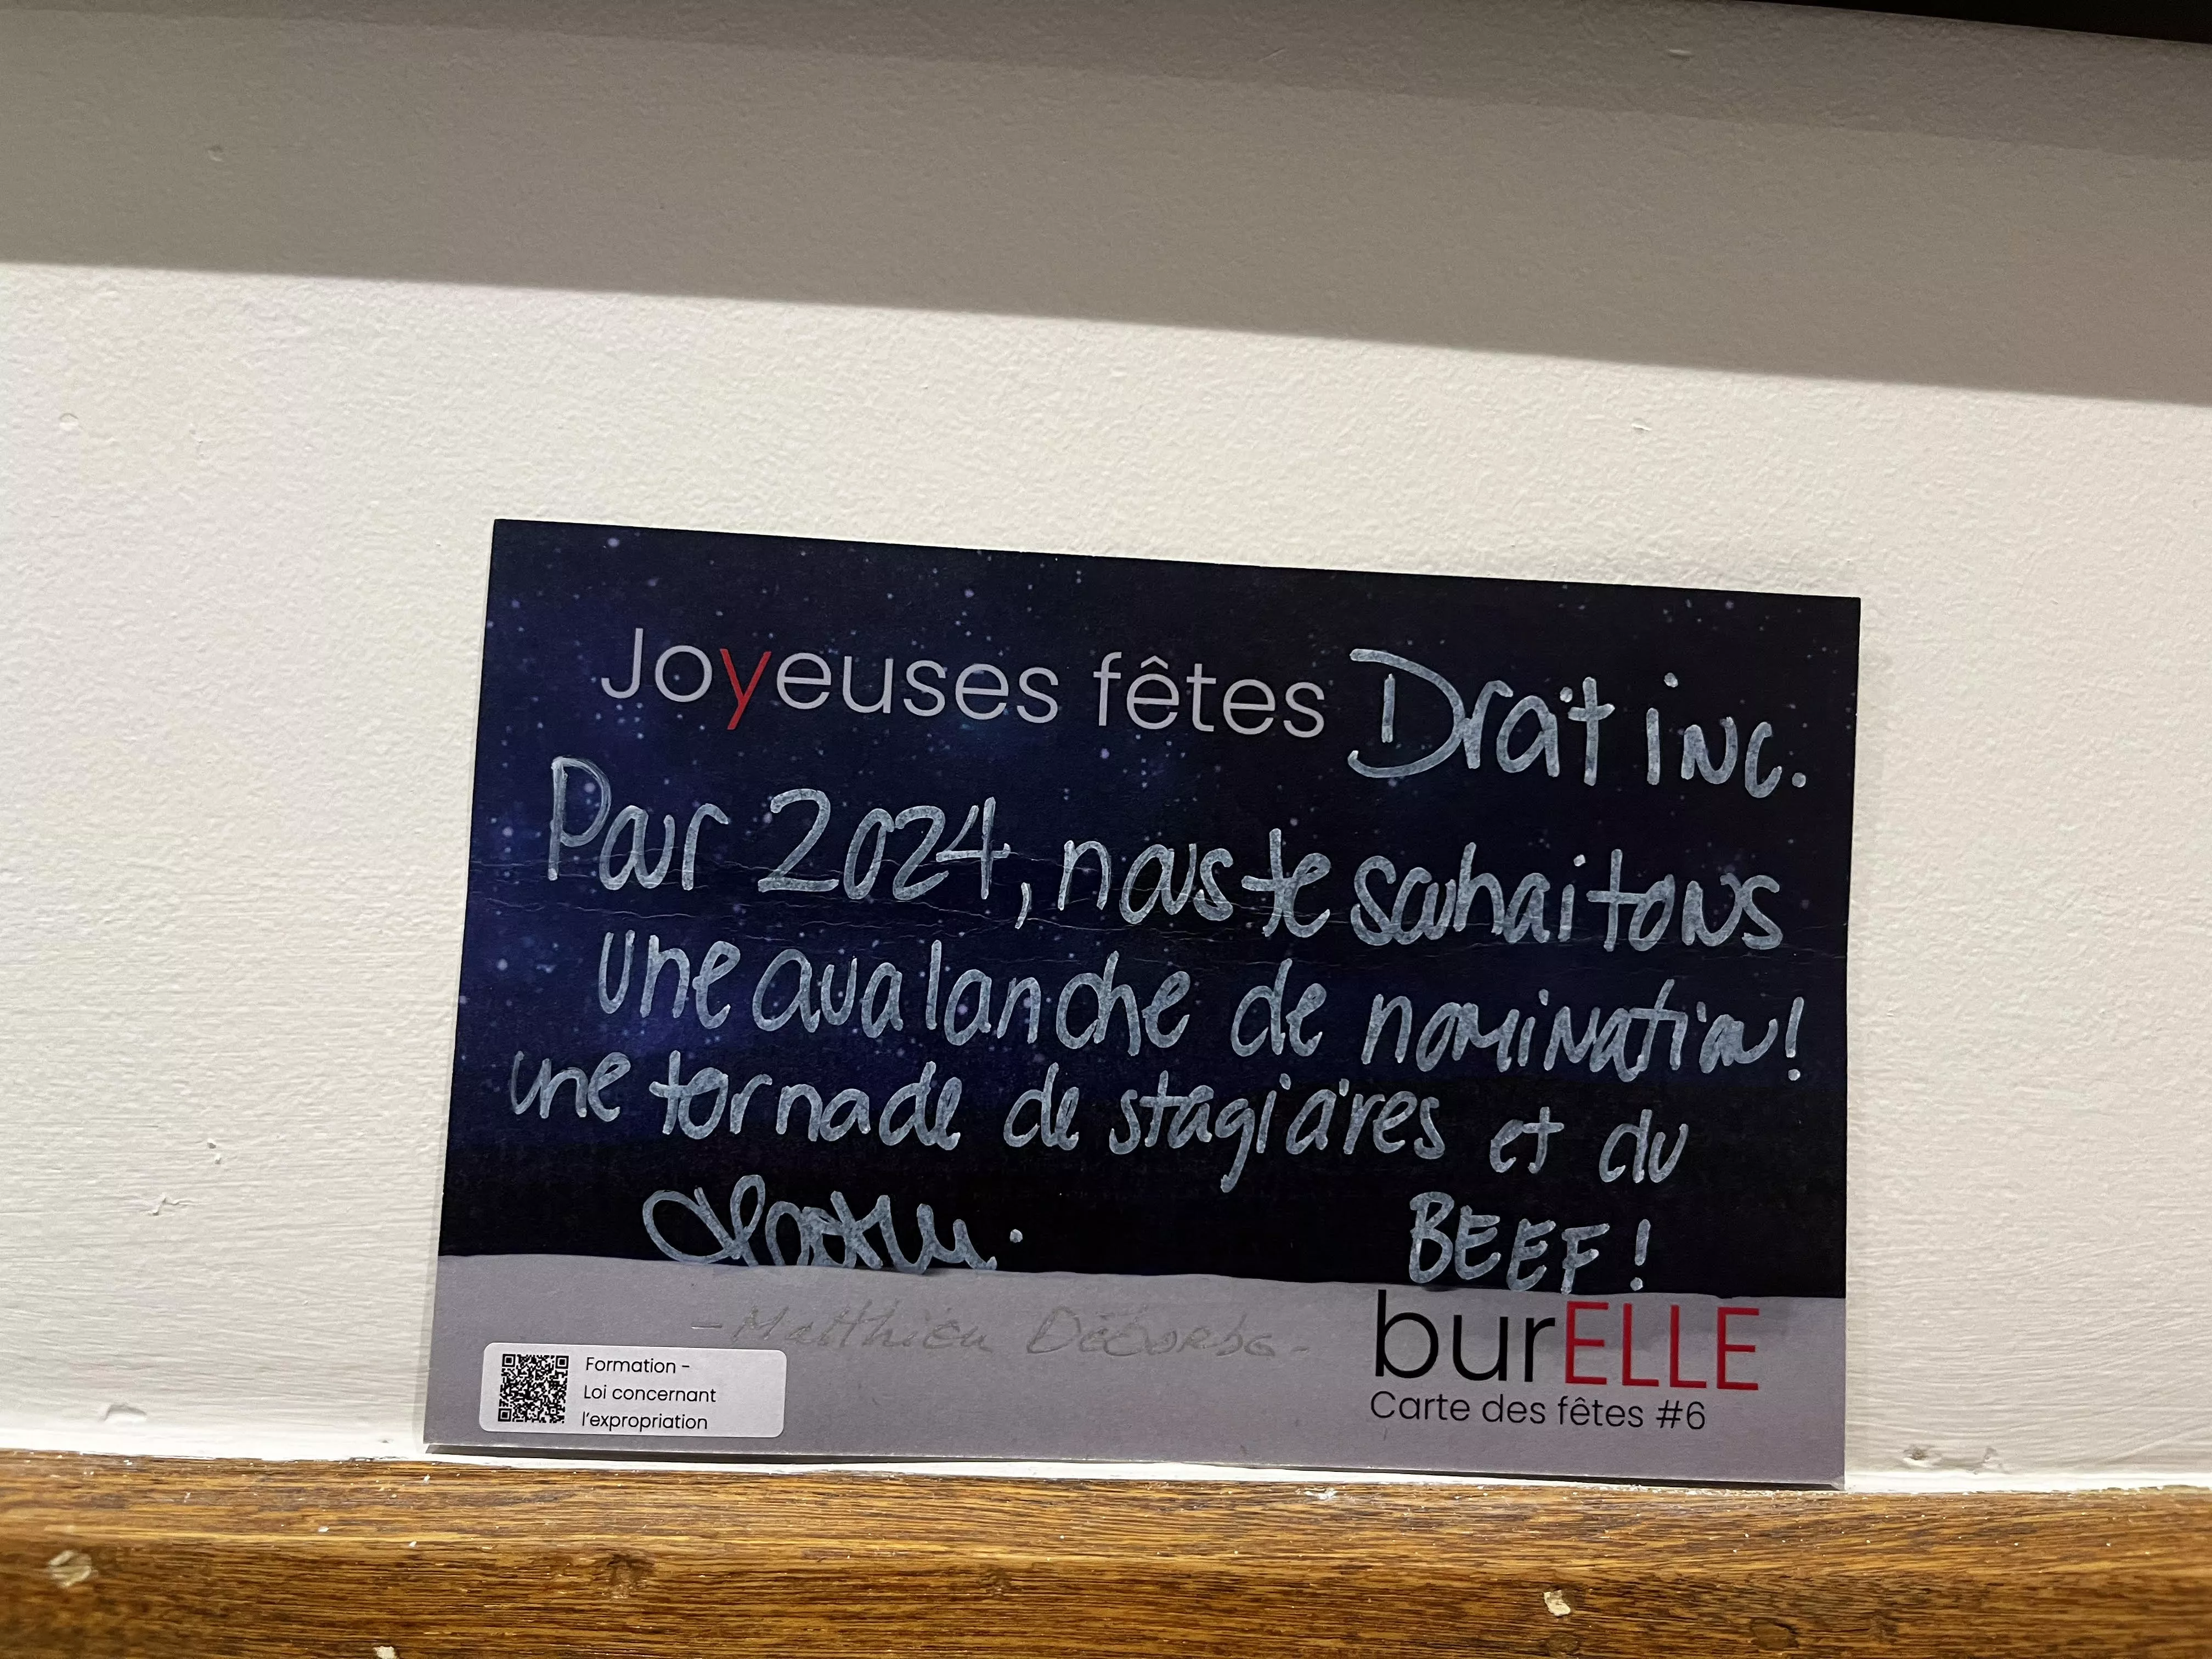 Joyeuses fêtes Droit inc.
Pour 2024, nous te souhaitons
une avalanche de nomination!
une tornade de stagiaires et du
BEEF!
- Matthieu
burELLE
Carte des fêtes #6
Formation -
Loi concernant
l'expropriation